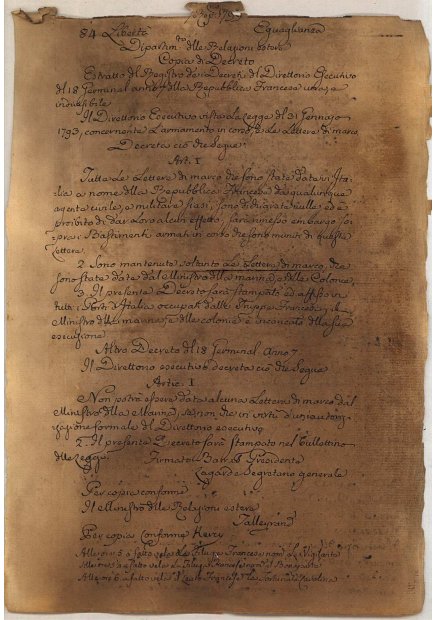 84 Libertà Eguaglianza
Dipartim.to delle Relazioni estere
Copia di Decreto
Estratto del Registro de Decreti del Direttorio Esecutivo
del 18 Germinal anno della Repubblica Francese una, e
indivisibile
Il Direttorio Esecutivo vista la Legge del 31 Gennajo
1793, concernente L'armamento in corso, e le Lettere di marco
Decreta ciò che segue:
Art. 1
Tutte le Lettere di marco che sono state date in Ita-
lia a nome della Repubblica Francese da qualunque
agente civile, o militare siasi, sono dichiarate nulle ed è
proibito di dar loro alcun effetto, sarà messo embargo so-
pra i Bastimenti armati in corso che sono muniti di queste
Lettere
2. Sono mantenute soltanto le Lettere di marco, che
sono state date dal Ministro della marina, e delle Colonie,
3. Il presente Decreto sarà stampato ed affisso in
tutti i Porti d'Italia occupati dalle Truppe Francesi, il
Ministro della marina, e delle colonie è incaricato della sua
esecuzione
Altro Decreto del 18 Germinal Anno 7
Il Direttorio esecutivo decreta ciò che segue
Artic. 1
Non potrà essere data alcuna Lettera di marco dal
Ministro della Marina, se non che in virtù d'una autoriz-
zazione formale del Direttorio esecutivo
2. Il presente Decreto sarà stampato nel Bullettino
delle Legge. Firmato: Barras Presidente
Lagarde Segretario generale
Per copia conforme
Il Ministro delle Relazioni estere
Talleyrand
Per copia conforme
Alle ore 5 Francese nom.
Francese nom. il Bonaparte
Alle ore 6 è fatto vela Francese la Fortunata